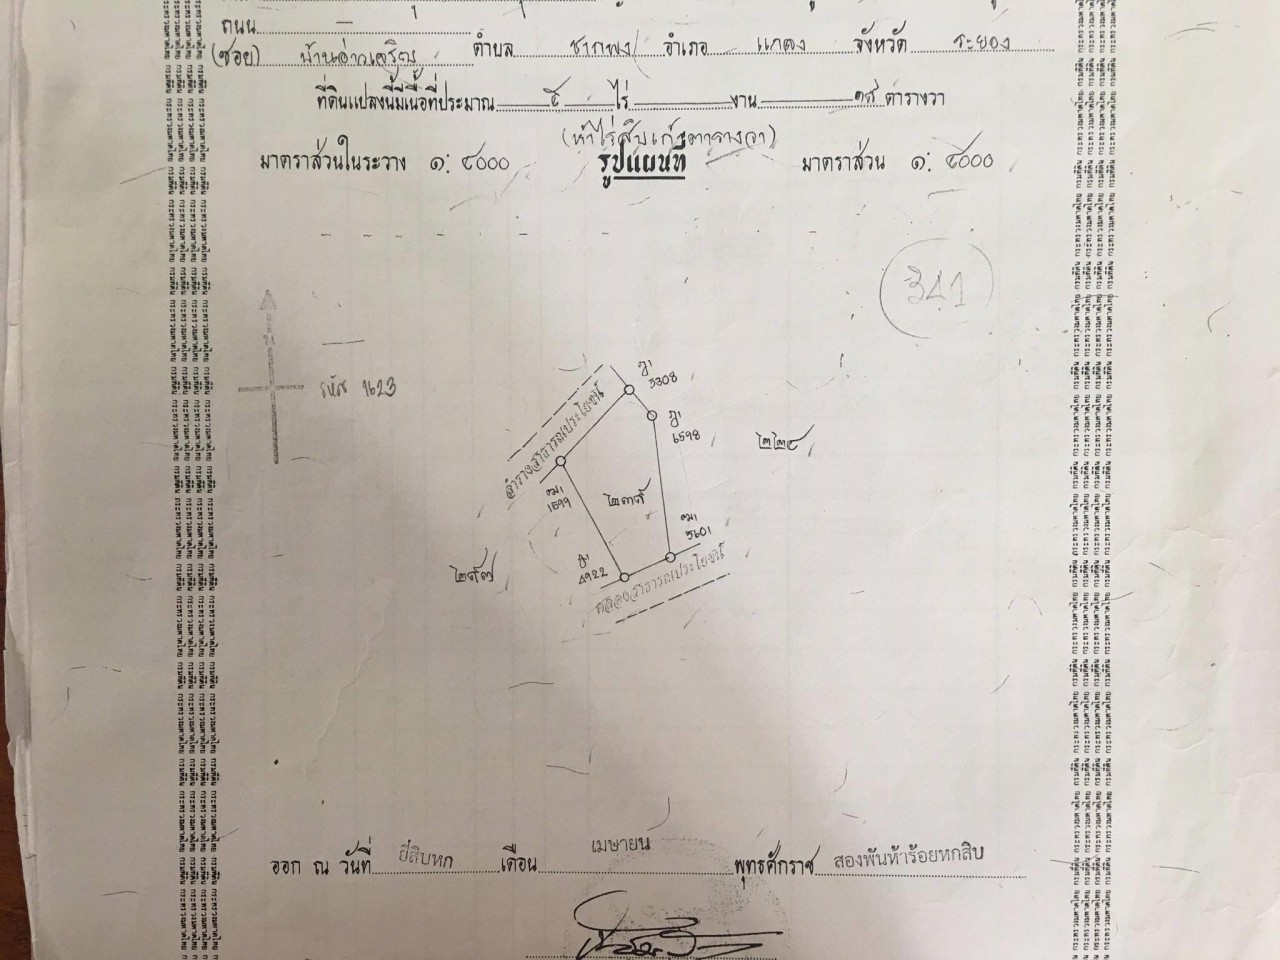 ถนน
(ซอย) บ้านอ่าวเจริญ ตำบล ชากพง อำเภอ แกลง จังหวัด ระยอง
ที่ดินแปลงนี้มีเนื้อที่ประมาณ ๕ ไร่ งาน ๑๙ ตารางวา
(ห้าไร่สิบเก้าตารางวา)
มาตราส่วนในระวาง ๑: ๔๐๐๐ รูปแผนที่ มาตราส่วน ๑: ๔๐๐๐
341
รหัส 1623
ลำรางสาธารณประโยชน์
ฎ1
3308
ฎ1
6598
๒๒๔
หม1
1599
๒๓๙
หม1
5601
ฎ1
4922
๒๙๗
คลองสาธารณประโยชน์
ออก ณ วันที่ ยี่สิบหก เดือน เมษายน พุทธศักราช สองพันห้าร้อยหกสิบ
กรมที่ดิน กระทรวงมหาดไทย